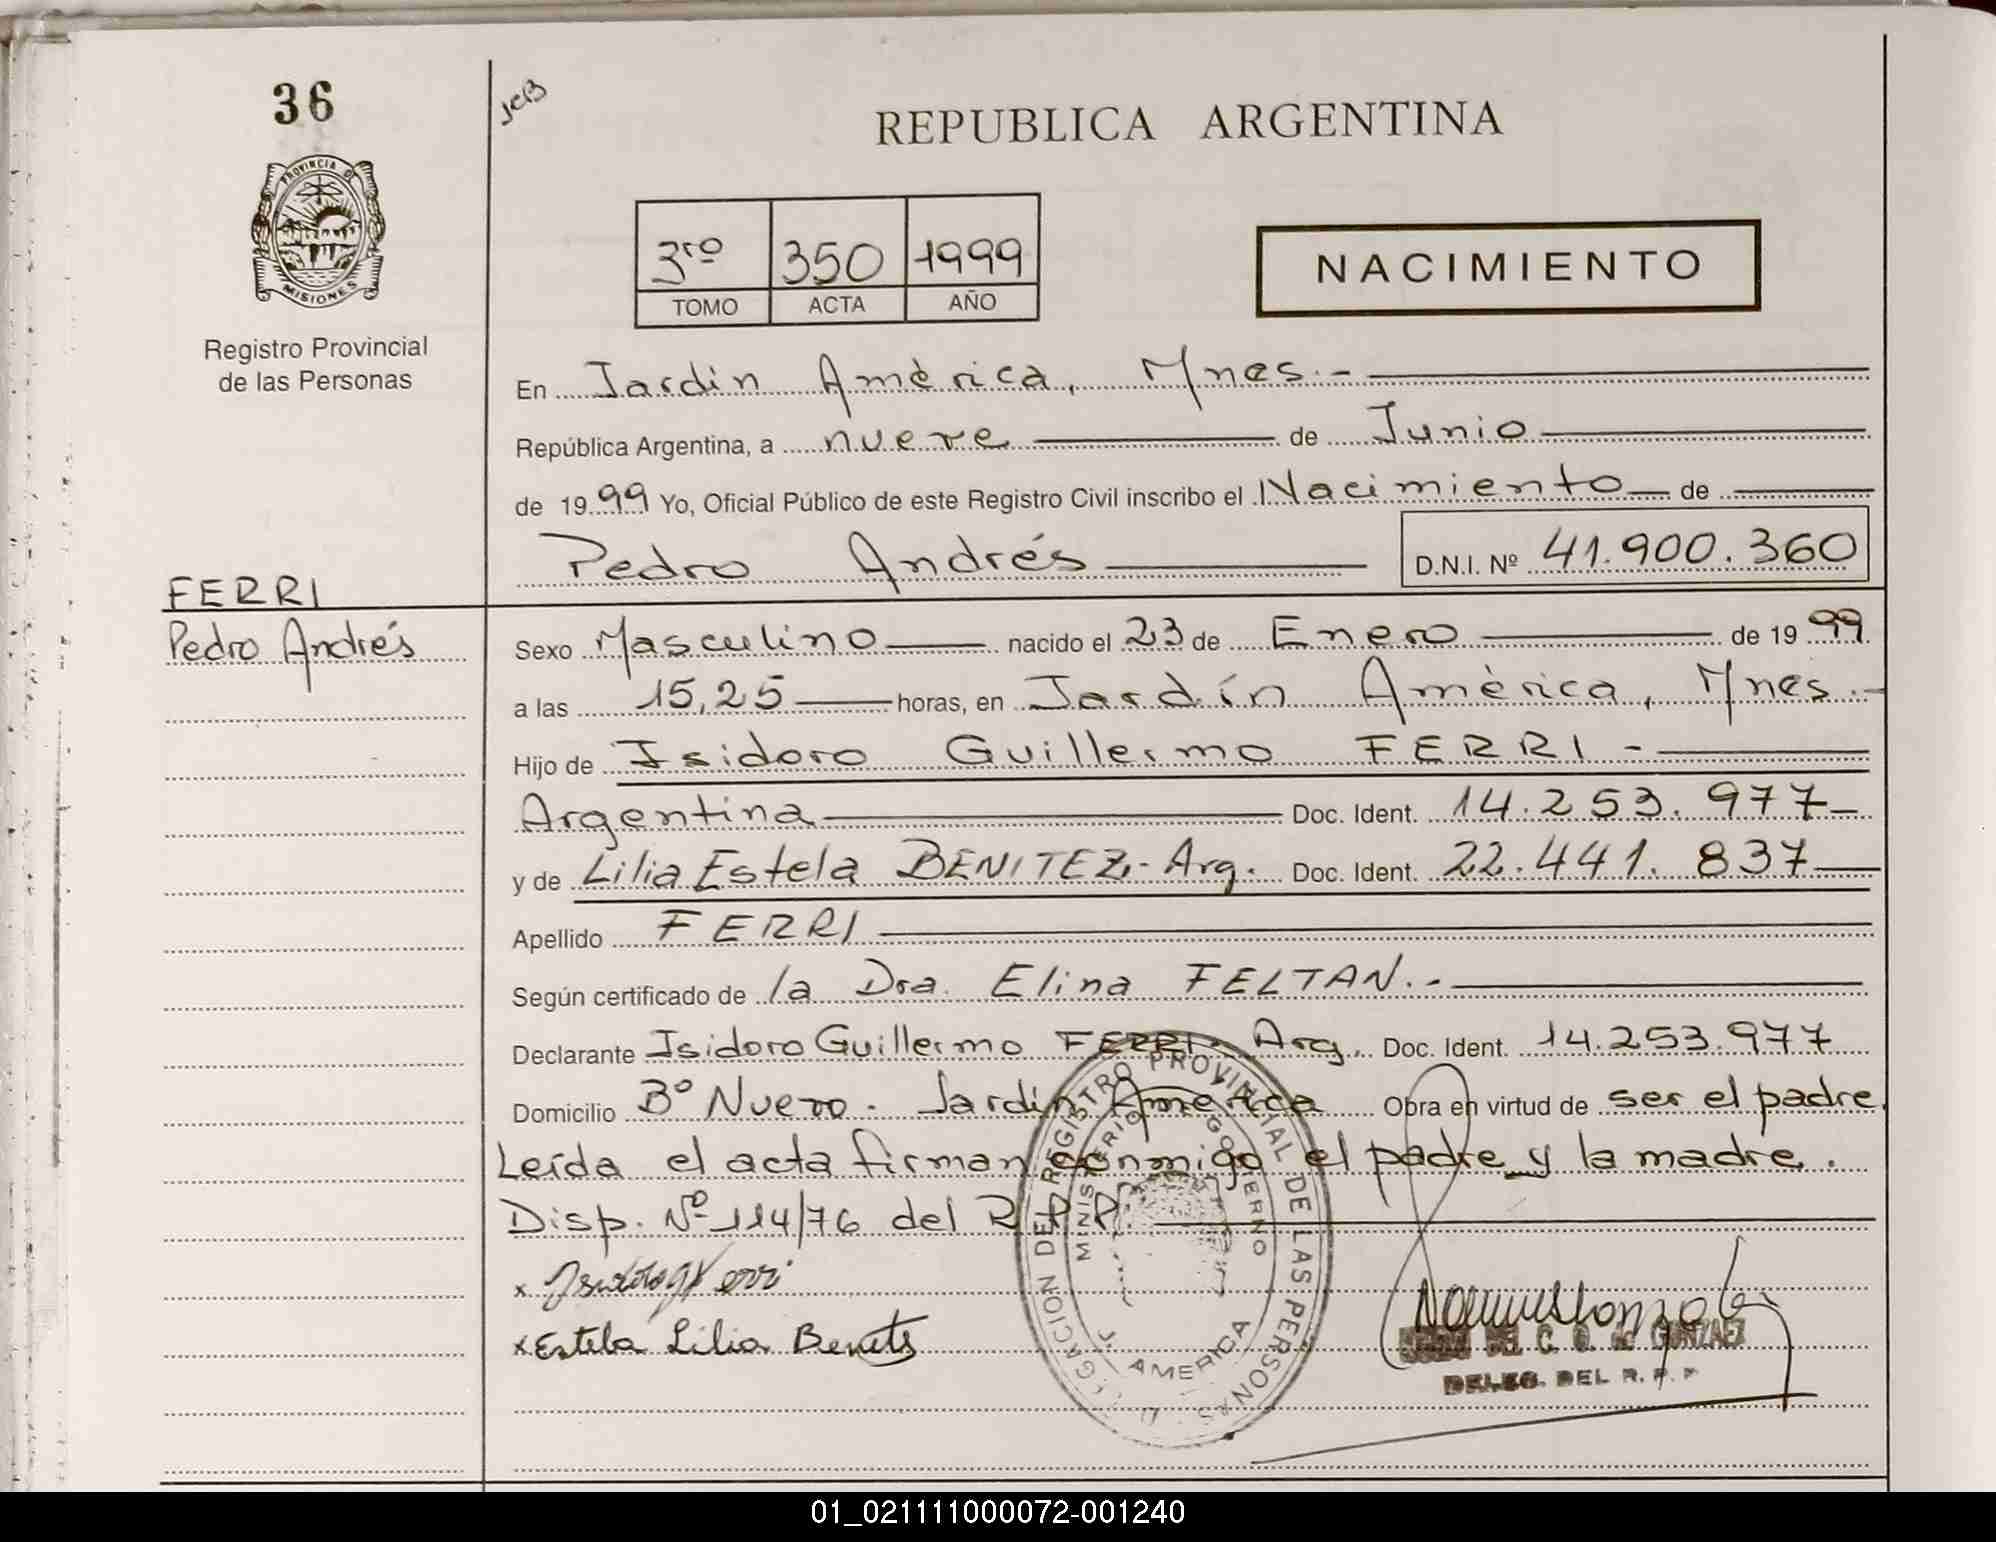 36
JCB
REPUBLICA ARGENTINA
PROVINCIA DE
MISIONES
Registro Provincial
de las Personas
3ro 350 1999
TOMO ACTA AÑO
NACIMIENTO
En Jardín América, Mnes.-
República Argentina, a nueve de Junio
de 1999 Yo, Oficial Público de este Registro Civil inscribo el Nacimiento de
Pedro Andrés D.N.I. Nº 41.900.360
FERRI
Pedro Andrés
Sexo Masculino nacido el 23 de Enero de 1999
a las 15,25 horas, en Jardín América, Mnes.-
Hijo de Isidoro Guillermo FERRI -
Argentina Doc. Ident. 14.253.977-
y de Lilia Estela BENITEZ,- Arg. Doc. Ident. 22.441.837
Apellido FERRI
Según certificado de la Dra. Elina FELTAN.-
Declarante Isidoro Guillermo FERRI Arg. Doc. Ident. 14.253.977
Domicilio Bº Nuevo. Jardín América Obra en virtud de ser el padre.
Leída el acta firman conmigo el padre y la madre.
Disp. Nº 114/76 del R.P.P.
x Isidoro G Ferri
x Estela Lilia Benits
DELEGACION DEL REGISTRO PROVINCIAL DE LAS PERSONAS
MINISTERIO GOBIERNO
J. AMERICA
DEL C. G. de GONZALEZ
DELEG. DEL R. P. P
01_021111000072-001240